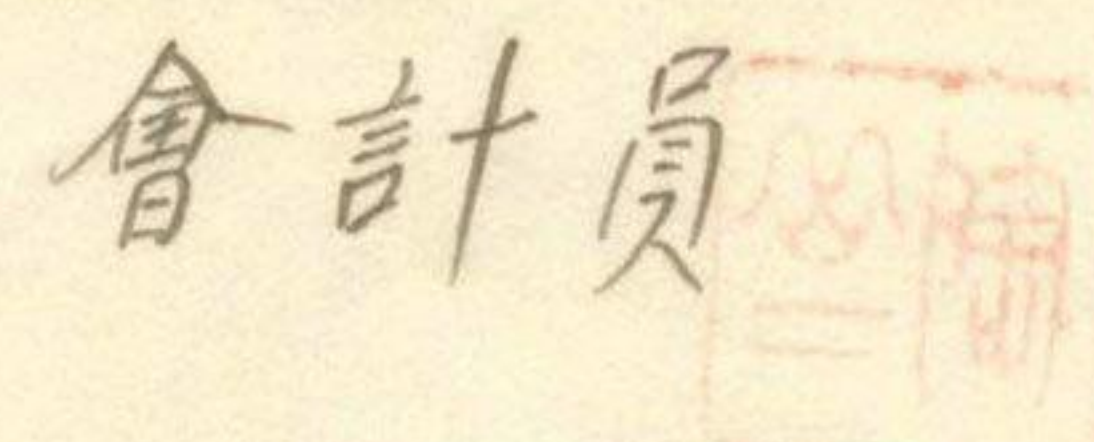 會計員